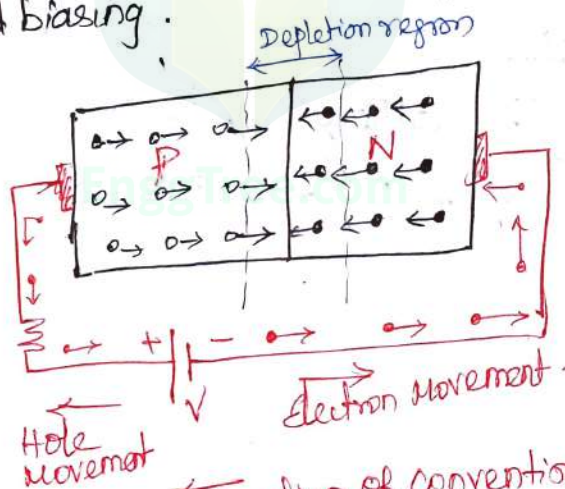 biasing.
Depletion region
P
N
EnggTree.com
+ -
V
Electron Movement.
Hole
Movement
of conventio